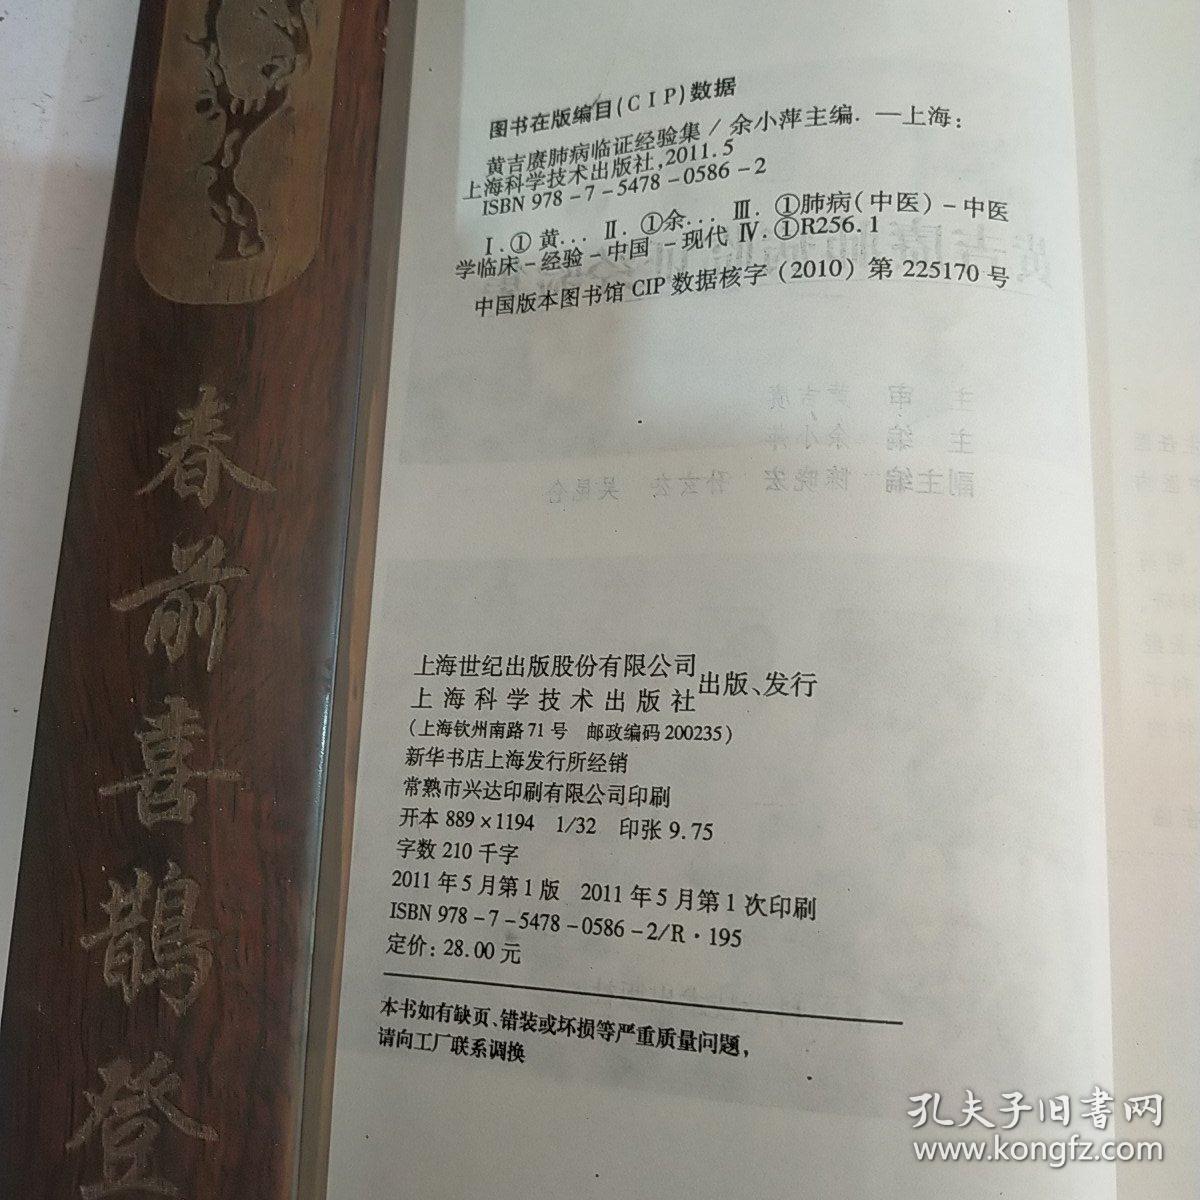 春前喜鹊登
图书在版编目(CIP)数据
黄吉赓肺病临证经验集 / 余小萍主编. —上海：
上海科学技术出版社,2011.5
ISBN 978-7-5478-0586-2
Ⅰ.①黄… Ⅱ.①余… Ⅲ.①肺病(中医)-中医
学临床-经验-中国-现代 Ⅳ.①R256.1
中国版本图书馆CIP数据核字(2010)第225170号
主 审 黄吉赓
主 编 余小萍
副主编
上海世纪出版股份有限公司
上海科学技术出版社
出版、发行
(上海钦州南路71号 邮政编码200235)
新华书店上海发行所经销
常熟市兴达印刷有限公司印刷
开本 889×1194 1/32 印张 9.75
字数 210 千字
2011年5月第1版 2011年5月第1次印刷
ISBN 978-7-5478-0586-2/R·195
定价：28.00元
本书如有缺页、错装或坏损等严重质量问题，
请向工厂联系调换
孔夫子旧书网
www.kongfz.com